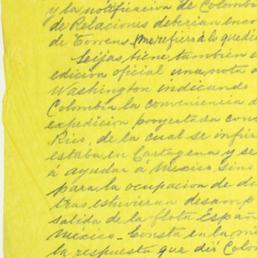 y la notificación de Colombi
de Relaciones deberían enco
de Torrens, (me refiero á lo que di
Seijas, tiene también e
edición oficial una nota a
Washington indicando
Colombia la conveniencia d
expedición proyectada con
Rico, de la cual se infie
estaba en Cartagena y se
á ayudar a México sino
para la ocupación de
tras estuvieran desamp
salida de la flota Españ
México. Consta en la mi
la respuesta que dió Colo